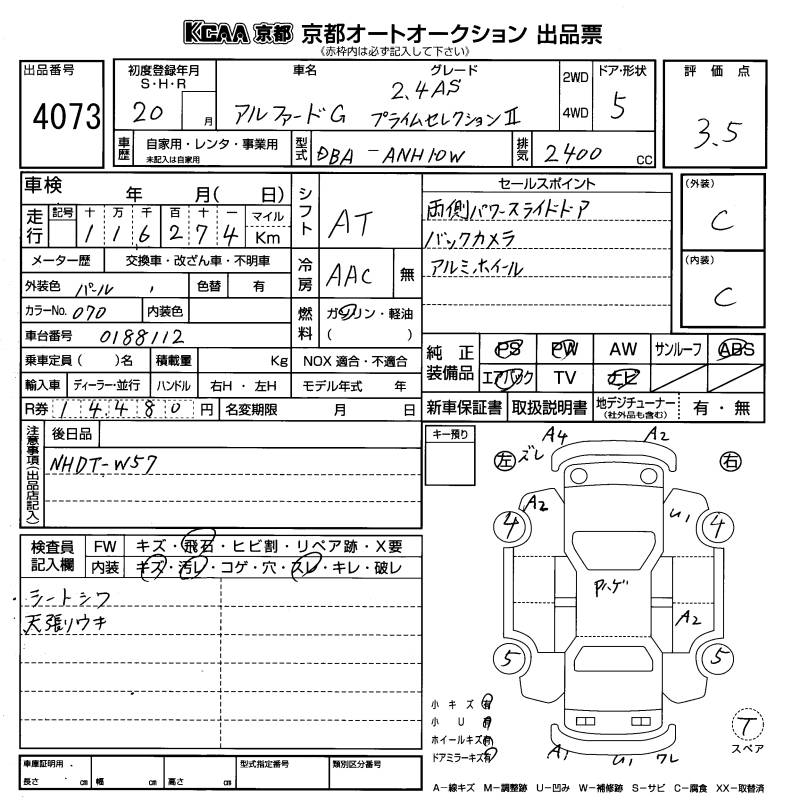 KCAA 京都 京都オートオークション 出品票
《赤枠内は必ず記入して下さい》
出品番号
4073
初度登録年月
S・H・R
20 月
車名
アルファードG
グレード
2.4AS
プライムセレクションⅡ
2WD
4WD
ドア・形状
5
評価点
3.5
車歴
自家用・レンタ・事業用
未記入は自家用
型式
DBA-ANH10W
排気
2400 CC
車検 年 月( 日)
走行
記号 十 万 千 百 十 一 マイル
1 1 6 2 7 4 Km
メーター歴 交換車・改ざん車・不明車
外装色 パール 色替 有
カラーNo. 070 内装色
車台番号 0188112
乗車定員( )名 積載量 Kg
輸入車 ディーラー・並行 ハンドル 右H・左H
R券 14480円 名変期限 月 日
シフト
AT
冷房
AAC 無
燃料
ガソリン・軽油
( )
NOX 適合・不適合
モデル年式 年
セールスポイント
両側パワースライドドア
バックカメラ
アルミホイール
(外装)
C
(内装)
C
純正装備品
PS PW AW サンルーフ ABS
エアバック TV ナビ
新車保証書 取扱説明書 地デジチューナー(社外品も含む) 有・無
注意事項(出品店記入)
後日品
NHDT-W57
キー預り
検査員記入欄
FW キズ・飛石・ヒビ割・リペア跡・X要
内装 キズ・汚レ・コゲ・穴・スレ・キレ・破レ
シートシワ
天張リウキ
左
右
A4
ズレ
A2
A2
U1
4
4
Pハゲ
A2
5
5
A1
U1
ワレ
小キズ有
小U有
ホイールキズ有
ドアミラーキズ有
T
スペア
車庫証明用
長さ cm 幅 cm 高さ cm
型式指定番号
類別区分番号
A-線キズ M-調整跡 U-凹み W-補修跡 S-サビ C-腐食 XX-取替済